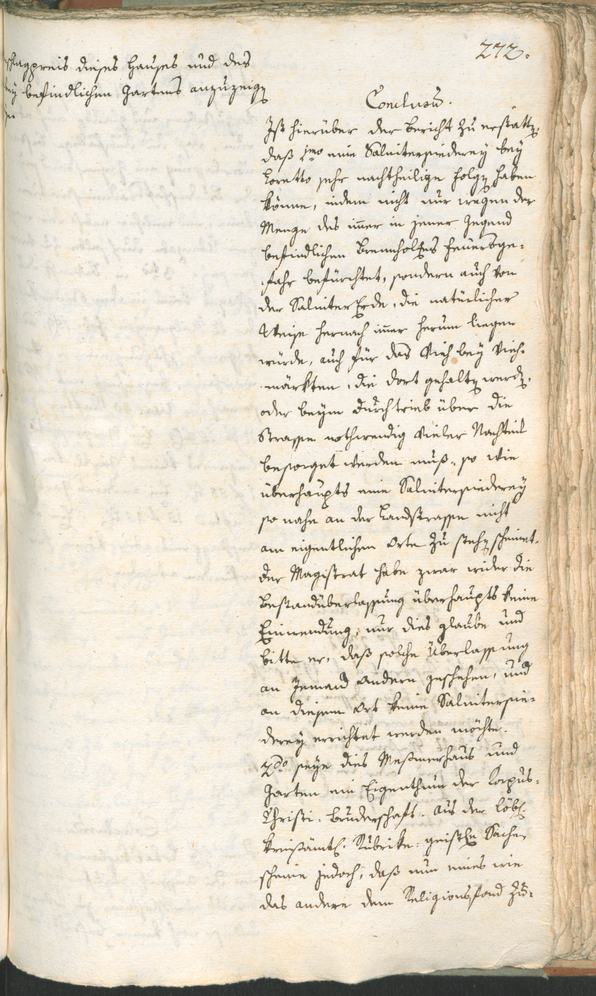 272.
schlagpreis dieses Hauses und des
bey befindlichen Gartens anzuzeigen
Conclusum.
Ist hierüber der Bericht zu erstatten,
daß 1mo eine Salitersiederey bey
Loretto sehr nachtheilige Folgen haben
könne, indem nicht nur wegen der
Menge des immer in jener Gegend
befindlichen Brennholzes Feuersge=
fahr befürchtet, sondern auch von
der Saliter Erde, die natürlicher
Weise hernach immer herum liegen
würde, auch für das Vieh bey Vieh=
märkten, die dort gehalten werden,
oder beym Durchtrieb über die
Strasse nothwendig vieler Nachtheil
besorget werden muß, so wie
überhaupts eine Salitersiederey
so nahe an der Landstrasse nicht
am eigentlichen Orte zu stehen scheinet.
Der Magistrat habe zwar wider die
Bestandüberlassung überhaupts keine
Einwendung, nur dies glaube und
bitte er, daß solche Überlassung
an Jemand andern geschehen, und
an diesem Ort keine Salitersie=
derey errichtet werden möchte.
2do seye dies Meßmerhaus und
Garten ein Eigenthum der Corpus=
Christi=Bruderschaft. Aus der löbl.
kreisämtl. Rubrike: geistliche Sache
scheine jedoch, daß nun eines wie
das andere dem Religionsfond zu=